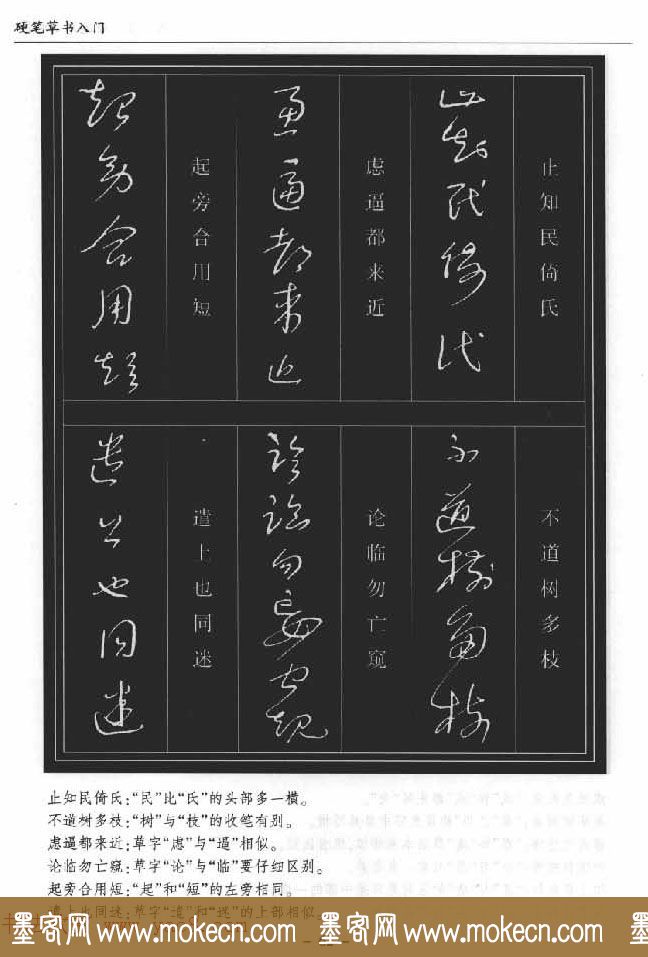 硬笔草书入门
止知民倚氏
不道树多枝
虑逼都来近
论临勿亡窥
起旁合用短
遣上也同迷
止知民倚氏:“民”比“氏”的头部多一横。
不道树多枝:“树”与“枝”的收笔有别。
虑逼都来近:草字“虑”与“逼”相似。
论临勿亡窥:草字“论”与“临”要仔细区别。
起旁合用短:“起”和“短”的左旁相同。
遣上也同迷:草字“遣”和“迷”的上部相似。
墨客网 www.mokecn.com 墨客网 www.mokecn.com